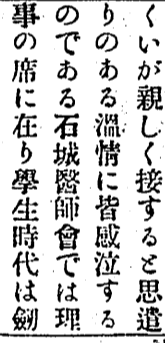 くいが親しく接すると思遣
りのある溫情に皆感泣する
のである石城醫師會では理
事の席に在り學生時代は劒